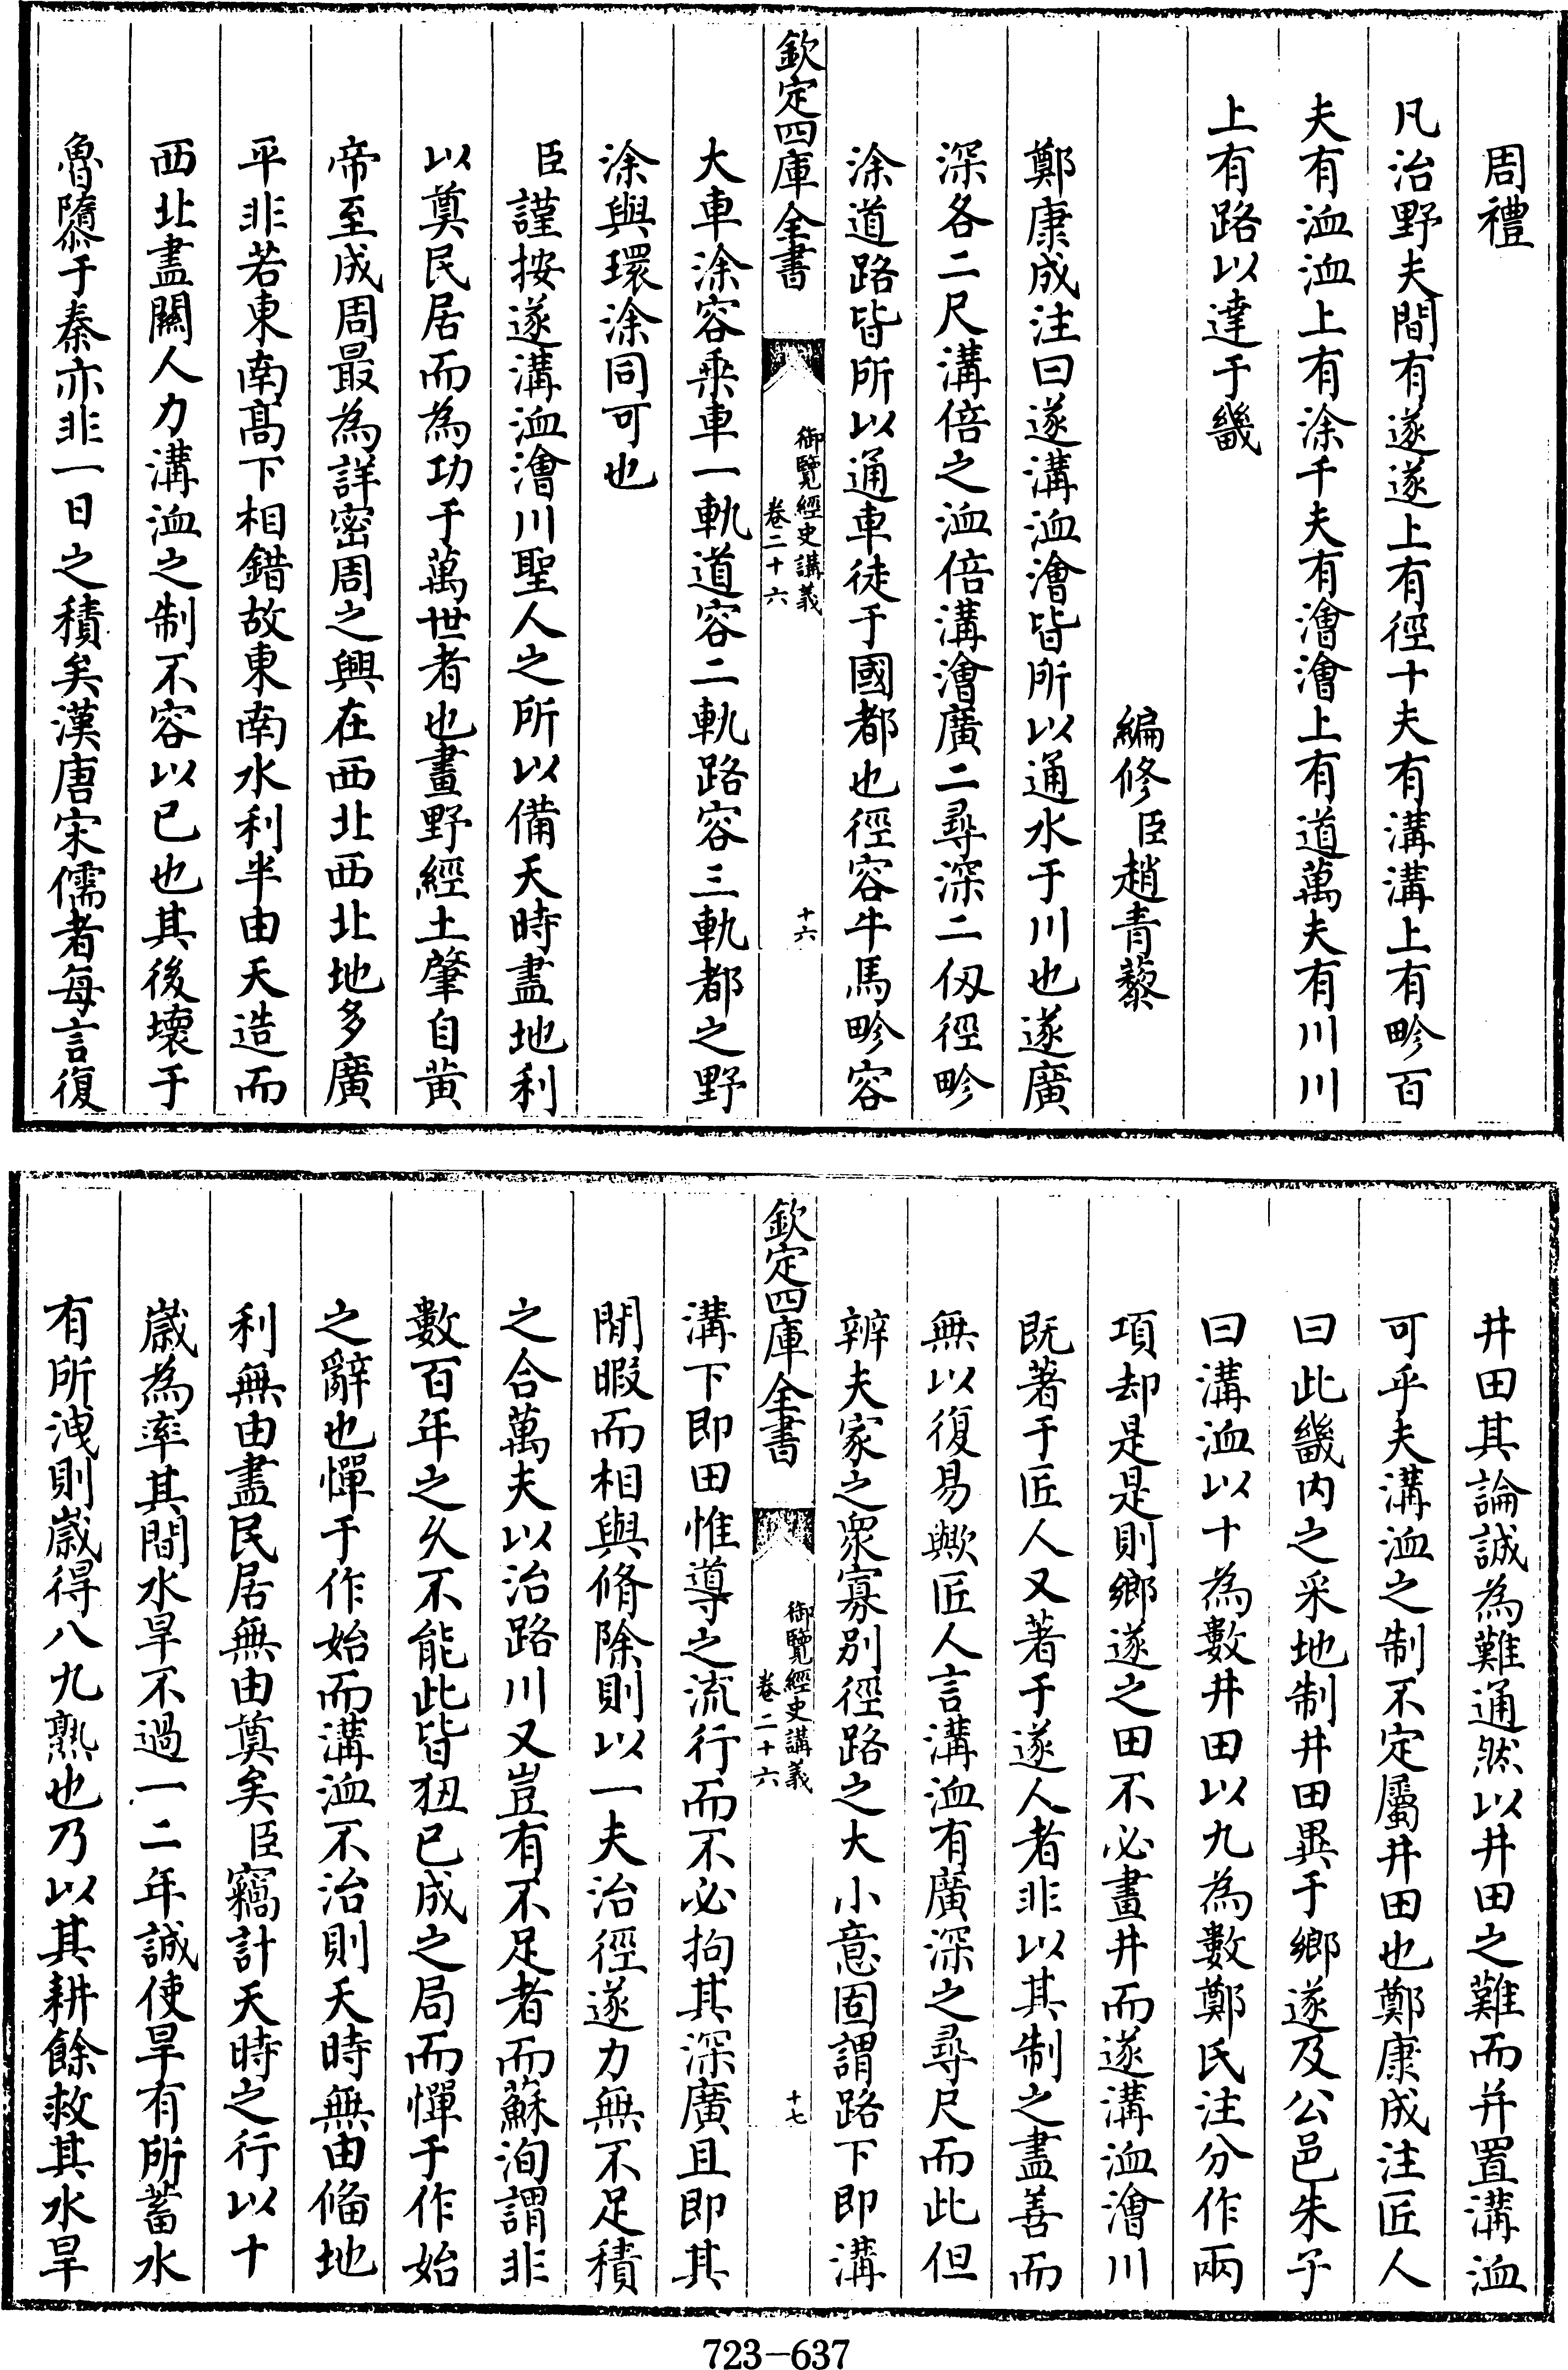 周禮
凡治野夫間有遂遂上有徑十夫有溝溝上有畛百
夫有洫洫上有涂千夫有澮澮上有道萬夫有川川
上有路以達于畿
編修臣趙青藜
鄭康成注曰遂溝洫澮皆所以通水于川也遂廣
深各二尺溝倍之洫倍溝澮廣二尋深二仞徑畛
涂道路皆所以通車徒于國都也徑容牛馬畛容
欽定四庫全書
御覽經史講義
卷二十六
十六
大車涂容乘車一軌道容二軌路容三軌都之野
涂與環涂同可也
臣謹按遂溝洫澮川聖人之所以備天時盡地利
以奠民居而為功于萬世者也畫野經土肇自黄
帝至成周最為詳密周之興在西北西北地多廣
平非若東南髙下相錯故東南水利半由天造而
西北盡闗人力溝洫之制不容以已也其後壞于
魯隳于秦亦非一日之積矣漢唐宋儒者每言復
井田其論誠為難通然以井田之難而并置溝洫
可乎夫溝洫之制不定屬井田也鄭康成注匠人
曰此畿内之采地制井田異于鄉遂及公邑朱子
曰溝洫以十為數井田以九為數鄭氏注分作兩
項却是是則鄉遂之田不必畫井而遂溝洫澮川
既著于匠人又著于遂人者非以其制之盡善而
無以復易歟匠人言溝洫有廣深之尋尺而此但
辨夫家之衆寡别徑路之大小意固謂路下即溝
欽定四庫全書
御覽經史講義
卷二十六
十七
溝下即田惟導之流行而不必拘其深廣且即其
閒暇而相與脩除則以一夫治徑遂力無不足積
之合萬夫以治路川又豈有不足者而蘇洵謂非
數百年之乆不能此皆狃已成之局而憚于作始
之辭也憚于作始而溝洫不治則天時無由備地
利無由盡民居無由奠矣臣竊計天時之行以十
嵗為率其間水旱不過一二年誠使旱有所蓄水
有所洩則嵗得八九熟也乃以其耕餘救其水旱
723-637